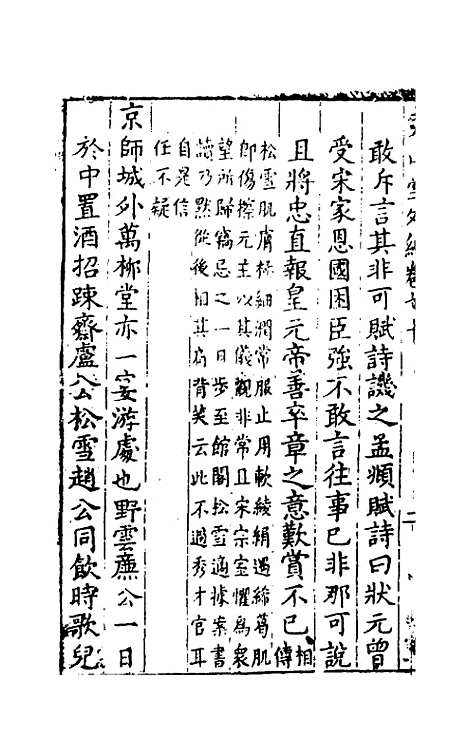 敢斥言其非可賦詩譏之孟頫賦詩曰狀元曾
受宋家恩國困臣強不敢言往事已非那可說
且將忠直報皇元帝善卒章之意歎賞不已相傳
松雪肌膚極細潤常服止用軟綾絹遇絺葛肌
即傷擦元主以其儀觀非常且宋宗室懼爲衆
望所歸竊忌之一日步至館閣松雪適據案書
讀乃默從後相其肩背笑云此不過秀才官耳
自是信
任不疑
京師城外萬柳堂亦一宴游處也野雲廉公一日
於中置酒招踈齋盧公松雪趙公同飲時歌兒